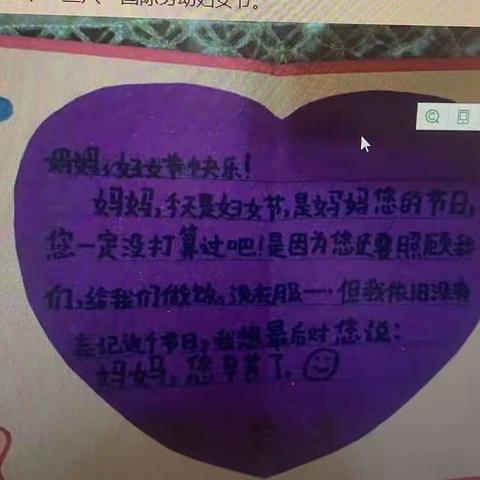 三八"国际劳动妇女节。
妈妈,妇女节快乐!
妈妈,今天是妇女节,是妈妈您的节日,
您一定没打算过吧!是因为您还要照顾我
们,给我们做饭,洗衣服……但我依旧没有
忘记这个节日,我想最后对您说:
妈妈,您辛苦了。